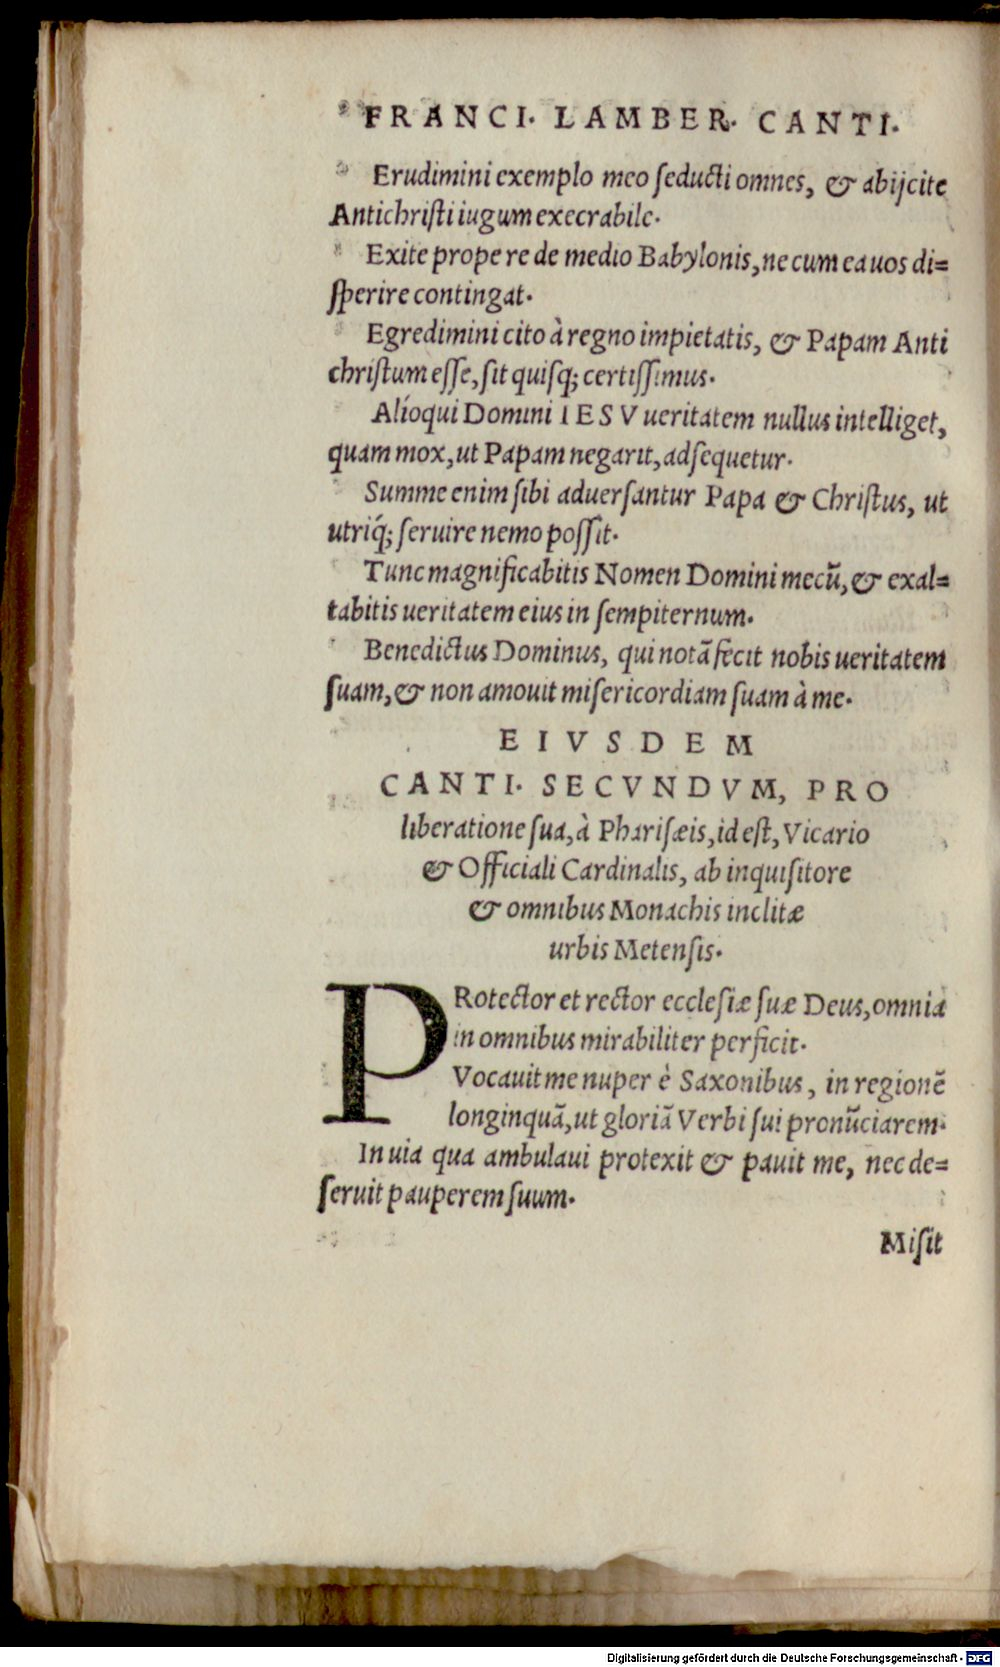 FRANCI. LAMBER. CANTI.
Erudimini exemplo meo ſeducti omnes, & abijcite
Antichriſti iugum execrabile.
Exite propere de medio Babylonis, ne cum ea uos di=
ſperire contingat.
Egredimini cito à regno impietatis, & Papam Anti
chriſtum eſſe, ſit quiſq; certiſſimus.
Alíoqui Domini IESV ueritatem nullus intelliget,
quam mox, ut Papam negarit, adſequetur.
Summe enim ſibi aduerſantur Papa & Chriſtus, ut
utriq́; ſeruire nemo poſſit.
Tunc magnificabitis Nomen Domini mecũ, & exal=
tabitis ueritatem eius in ſempiternum.
Benedictus Dominus, qui notã fecit nobis ueritatem
ſuam, & non amouit miſericordiam ſuam à me.
EIVSDEM
CANTI. SECVNDVM, PRO
liberatione ſua, à Phariſæis, id eſt, Vicario
& Officiali Cardinalis, ab inquiſitore
& omnibus Monachis inclitæ
urbis Metenſis.
PRotector et rector eccleſiæ ſuæ Deus, omnia
in omnibus mirabiliter perficit.
Vocauit me nuper è Saxonibus, in regionẽ
longinquã, ut gloriã Verbi ſui pronũciarem.
In uia qua ambulaui protexit & pauit me, nec de=
ſeruit pauperem ſuum.
Miſit
Digitalisierung gefördert durch die Deutsche Forschungsgemeinschaft - DFG